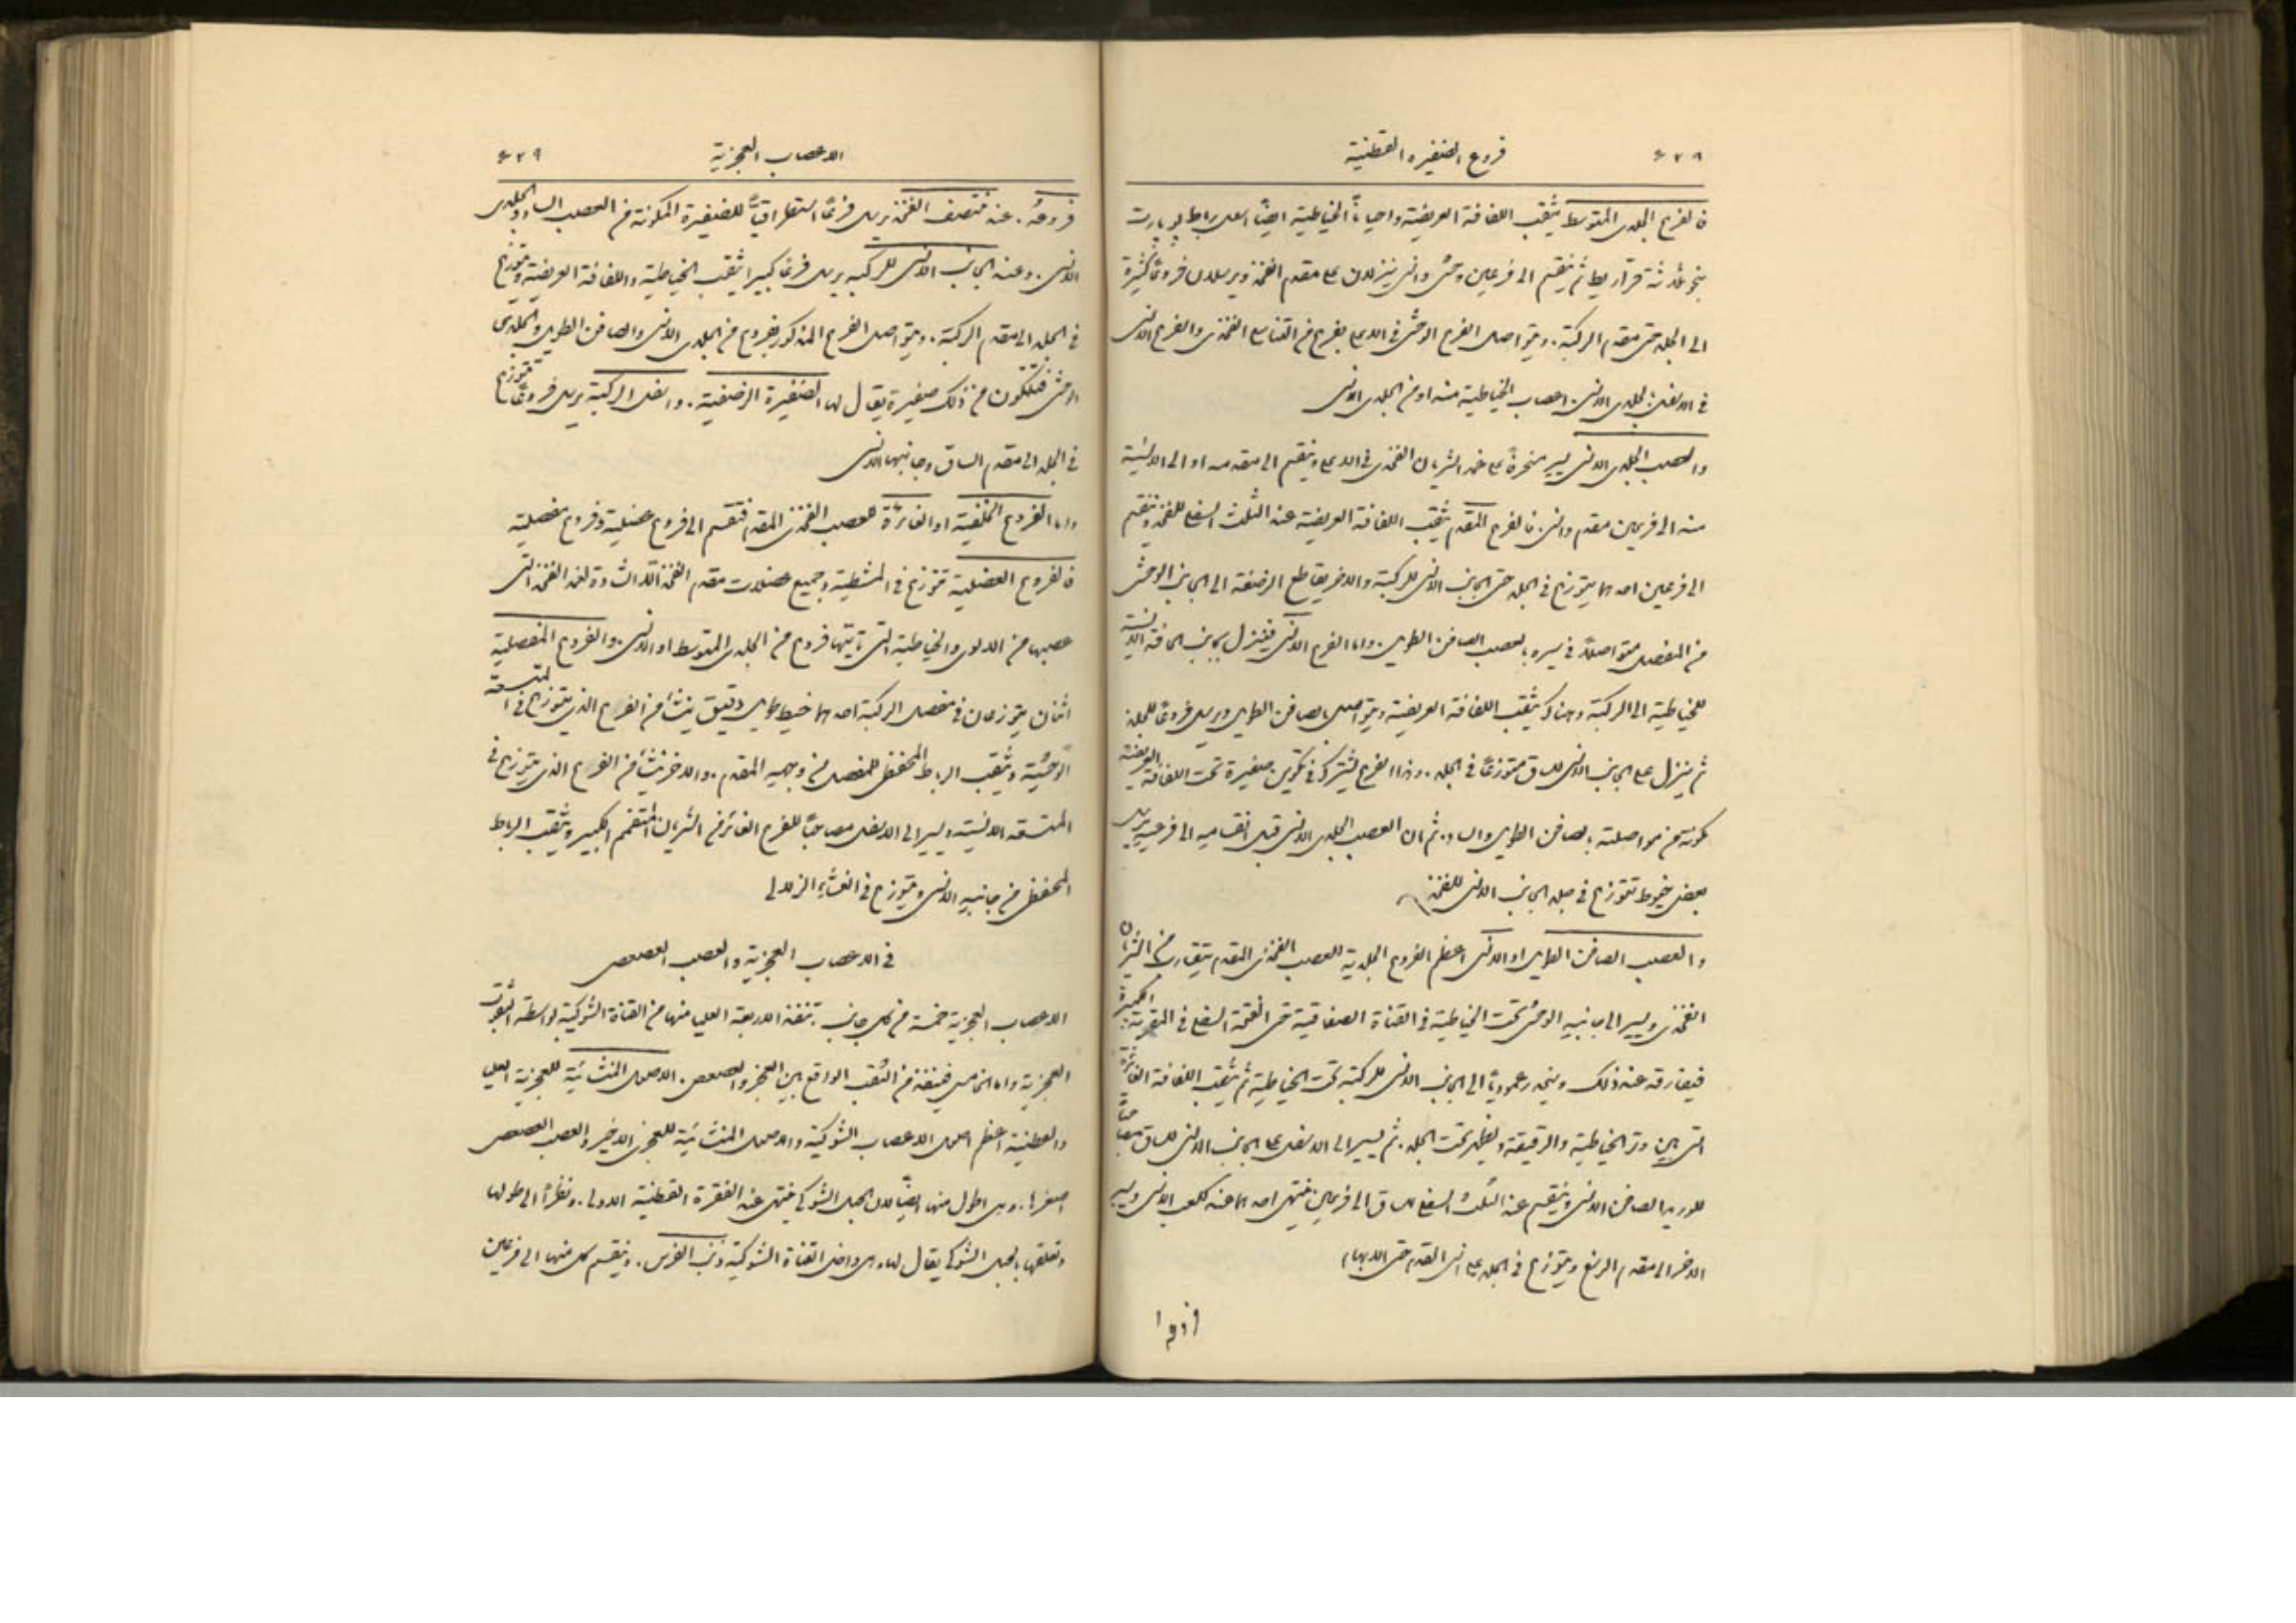 ٤٢٨
فروع الضفيرة القطنية
فالفرع الجلدي المتوسط يثقب اللفافة العريضة واحياناً الخياطية ايضاً اسفل رباط بوبارت
بنحو ثلاثة قراريط ثم ينقسم الى فرعين وحشي وانسي ينزلان على مقدم الفخذ ويرسلان فروعاً كثيرة
الى الجلد حتى مقدم الركبة. ويتواصل الفرع الوحشي في الاعلى بفرع من التناسلي الفخذي والفرع الانسي
في الاسفل بالجلدي الانسي. اعصاب الخياطية منه او من الجلدي الانسي
والعصب الجلدي الانسي يسير منحرفاً على غمد الشريان الفخذي في الاعلى وينقسم الى مقدمه او الى الانسية
منه الى فرعين مقدم وانسي. فالفرع المقدم يثقب اللفافة العريضة عند الثلث السفلي للفخذ وينقسم
الى فرعين احدهما يتوزع في الجلد حتى الجانب الانسي للركبة والاخر يقاطع الرضفة الى الجانب الوحشي
من المفصل متواصلاً في سيره بالعصب الصافن الطويل. واما الفرع الانسي فينزل بجانب الحافة الانسية
للخياطية الى الركبة وهناك يثقب اللفافة العريضة ويتواصل بالصافن الطويل ويرسل فروعاً للجلد
ثم ينزل على الجانب الانسي للساق متوزعاً في الجلد. وهذا الفرع يشترك في تكوين ضفيرة تحت اللفافة العريضة
مكونة من مواصلته بالصافن الطويل والساد. ثم ان العصب الجلدي الانسي قبل انقسامه الى فرعيه يرسل
بعض خيوط تتوزع في جلد الجانب الانسي للفخذ
والعصب الصافن الطويل او الانسي اعظم الفروع الجلدية للعصب الفخذي المقدم يتقارب من الشريان
الفخذي ويسير الى جانبه الوحشي تحت الخياطية في القناة الصفاقية حتى الفتحة السفلى في المقربة الكبيرة
فيفارقه عند ذلك وينحدر عمودياً الى الجانب الانسي للركبة تحت الخياطية ثم يثقب اللفافة الغائرة
التي بين وتر الخياطية والرقيقة ويظهر تحت الجلد. ثم يسير الى الاسفل على الجانب الانسي للساق مصاحباً
للوريد الصافن الانسي وينقسم عند الثلث السفلي للساق الى فرعين ينتهي احدهما عند الكعب الانسي ويسير
الاخر الى مقدم الرسغ ويتوزع في الجلد على انسي القدم حتى الابهام
٤٢٩
الاعصاب العجزية
فروعهُ. عند منتصف الفخذ يرسل فرعاً استطراقياً للضفيرة المكونة من العصب الساد والجلدي
الانسي. وعند الجانب الانسي للركبة يرسل فرعاً كبيراً يثقب الخياطية واللفافة العريضة ويتوزع
في الجلد الى مقدم الركبة. ويتواصل الفرع المذكور بفروع من الجلدي الانسي والصافن الطويل والجلدي
الوحشي فتتكون من ذلك ضفيرة يقال لها الضفيرة الرضفية. واسفل الركبة يرسل فروعاً تتوزع
في الجلد الى مقدم الساق وجانبها الانسي
واما الفروع الخلفية او الغائرة للعصب الفخذي المقدم فتنقسم الى فروع عضلية وفروع مفصلية
فالفروع العضلية تتوزع في المشطية وجميع عضلات مقدم الفخذ الا الشادة لغمد الفخذ التي
عصبها من الالوي والخياطية التي تأتيها فروع من الجلدي المتوسط او الانسي. والفروع المفصلية
اثنان يتوزعان في مفصل الركبة احدهما خيط طويل دقيق ينشأ من الفرع الذي يتوزع في المتسعة
الوحشية ويثقب الرباط المحفظي للمفصل من وجهه المقدم. والاخر ينشأ من الفرع الذي يتوزع في
المتسعة الانسية ويسير الى الاسفل مصاحباً للفرع الغائر من الشريان المتفمم الكبير ويثقب الرباط
المحفظي من جانبه الانسي ويتوزع في الغشاء الزلالي
في الاعصاب العجزية والعصب العصعصي
الاعصاب العجزية خمسة من كل جانب. تنفذ الاربعة العليا منها من القناة الشوكية بواسطة الثقوب
العجزية واما الخامس فينفذ من الثقب الواقع بين العجز والعصعص. الاصول المنشائية للعجزية العليا
والقطنية اعظم اصول الاعصاب الشوكية والاصول المنشائية للعجزي الاخير والعصب العصعصي
اصغرها. وهي اطول منها ايضاً لان الحبل الشوكي ينتهي عند الفقرة القطنية الاولى. ونظراً الى طولها
وتعلقها بالحبل الشوكي يقال لها وهي داخل القناة الشوكية ذنب الفرس. وينقسم كل منها الى فرعين